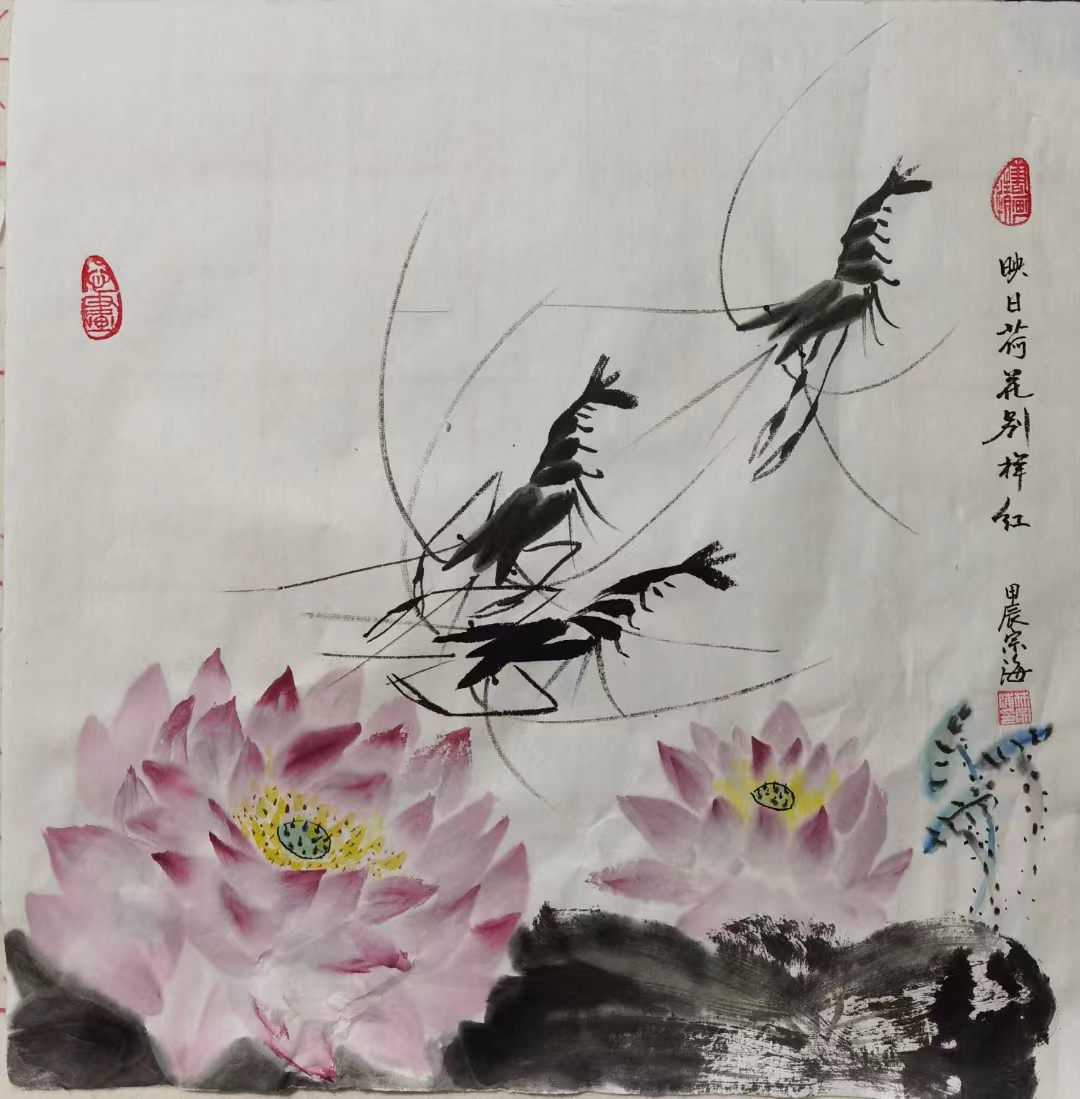 映日荷花别样红
甲辰宗海